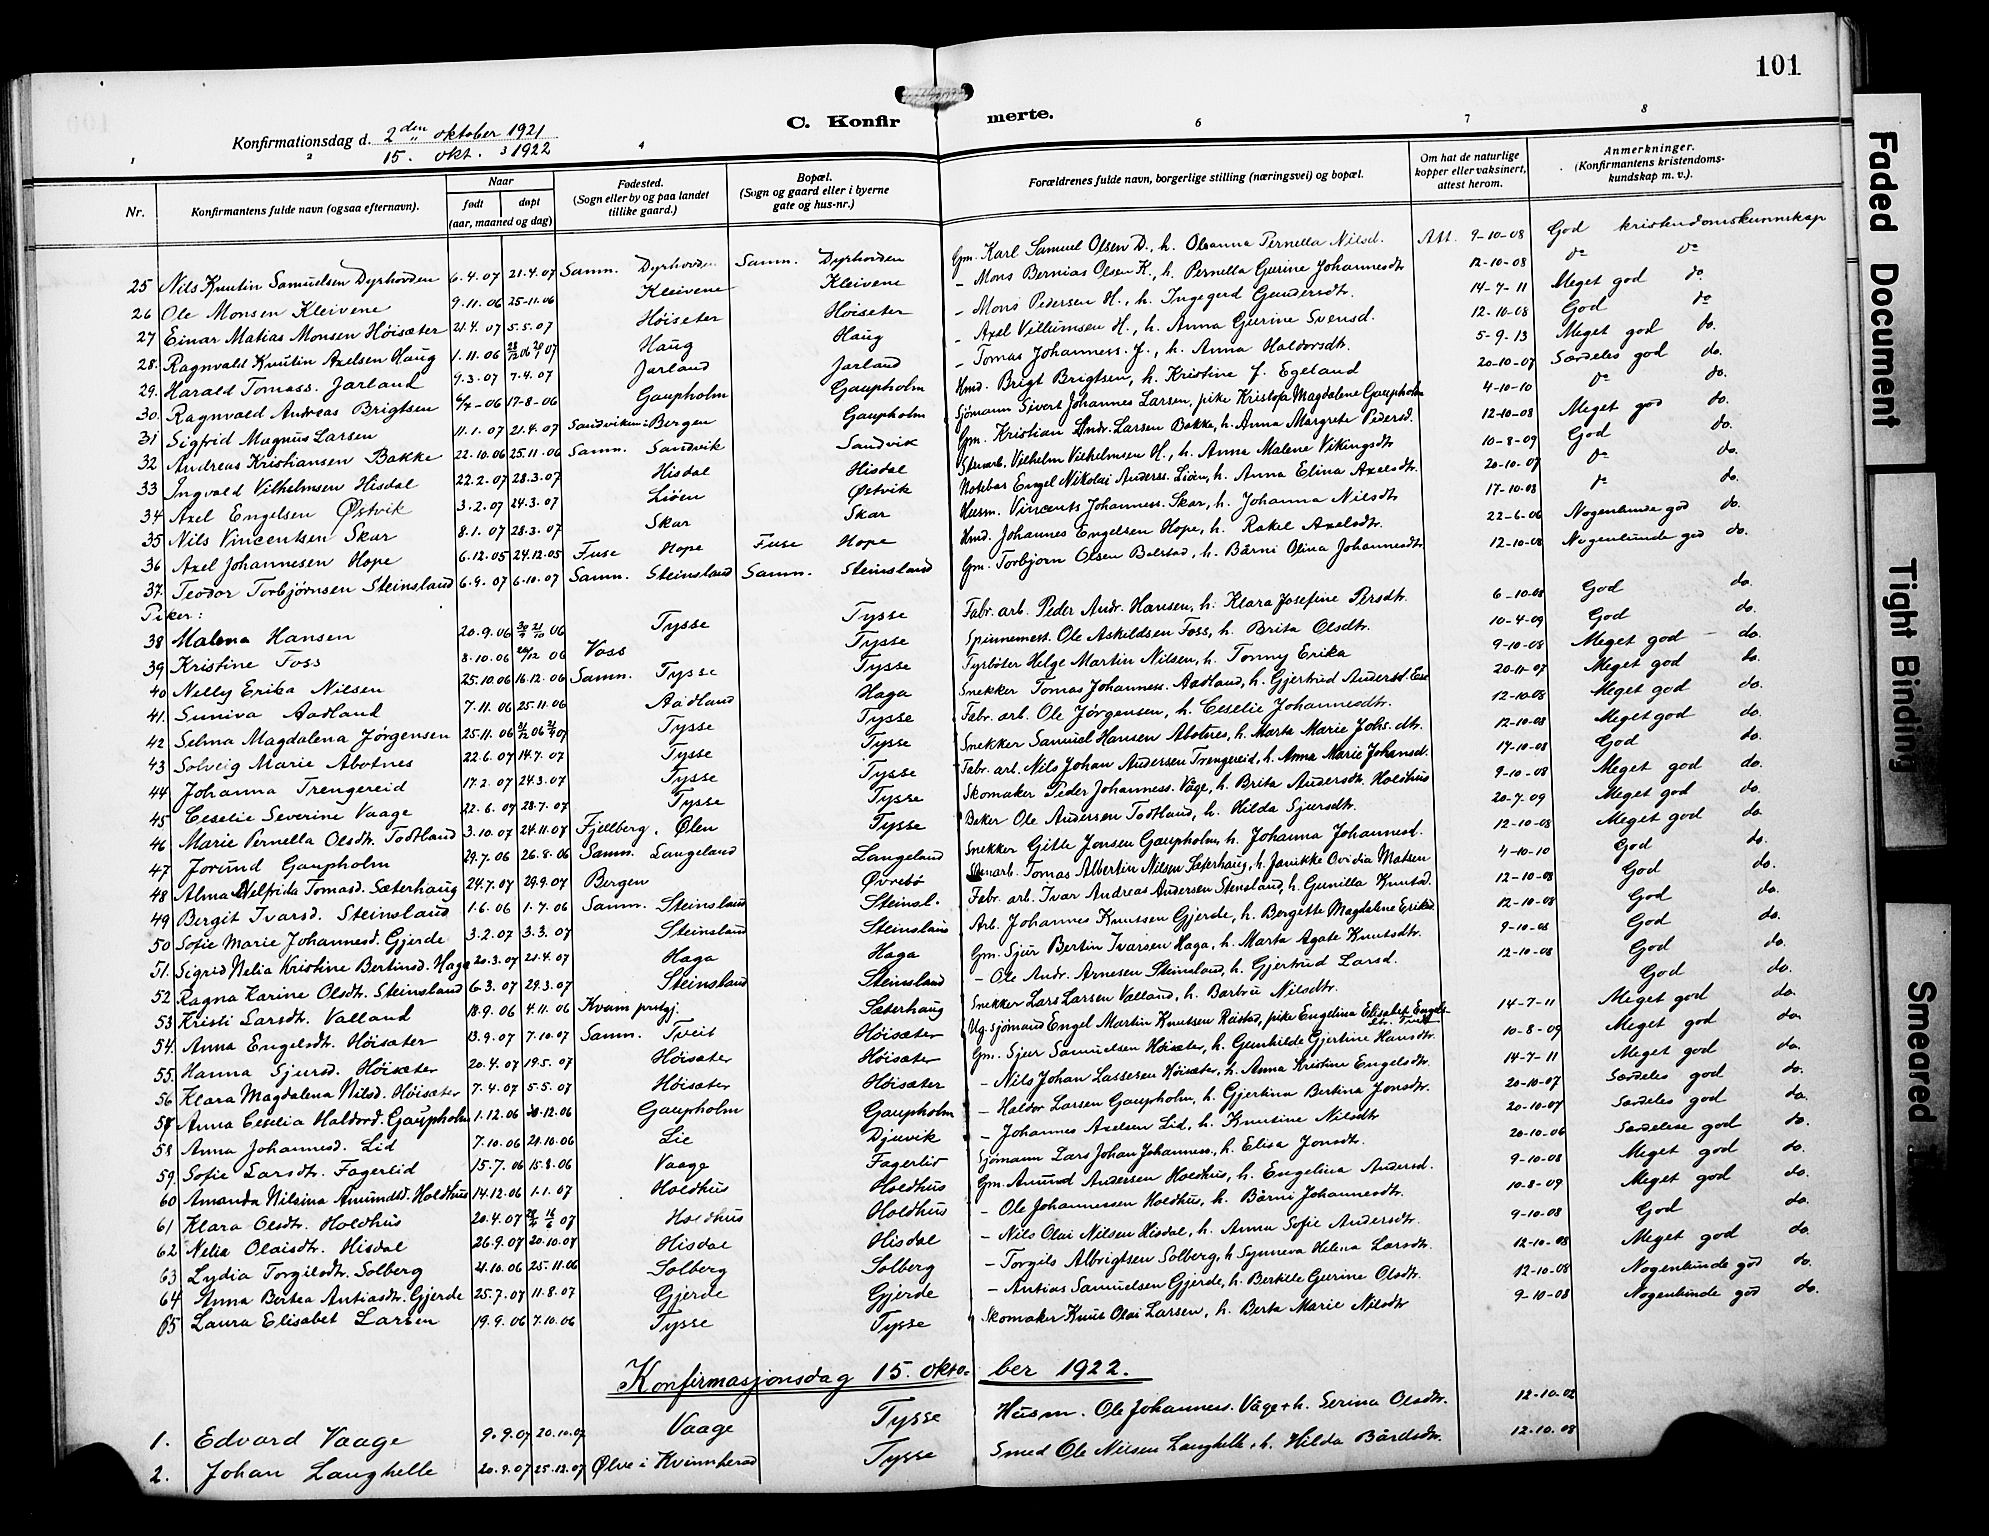 101
C. Konfirmerte.
Konfirmationsdag d. 2den oktober 1921
15. okt. 1922
1 2 3 4 6 7 8
Nr. Konfirmantens fulde navn (ogsaa efternavn). Naar født døpt (aar, maaned og dag) Fødested. (Sogn eller by og paa landet tillike gaard.) Bopæl. (Sogn og gaard eller i byerne gate og hus-nr.) Forældrenes fulde navn, borgerlige stilling (næringsvei) og bopæl. Om hat de naturlige kopper eller vaksinert, attest herom. Anmerkninger. (Konfirmantens kristendomskundskap m. v.).
25 Nils Knutin Samuelsen Dyrhovden 6.4.07 21.4.07 Samn. Dyrhovden Samn. Dyrhovden Gm. Karl Samuel Olsen D., h. Oleanna Pernella Nilsd. Att. 9-10-08 God kristendomskunnskap
26 Ole Monsen Kleivene 9.11.06 25-11.06 Kleivene Kleivene - Mons Bernias Olsen K., h. Pernella Gurine Johannesdtr 12-10-08 do do
27 Einar Matias Monsen Høisæter 21.4.07 5.5.07 Høiseter Høiseter - Mons Pedersen H., h. Ingegerd Gundersdtr. 14-7-11 Meget god do.
28. Ragnvald Knutin Axelsen Haug 1.11.06 Haug Haug - Axel Villumsen H., h. Anna Gurine Svensd. 12-10-08 God do
29. Harald Tomass. Jarland 9.3.07 7.4.07 Jarland Jarland - Tomas Johanness. J., h. Anna Haldorsdtr. 5-9-13 Meget god do.
30. Ragnvald Andreas Brigtsen 17-8-06 Gaupholm Gaupholm Hmd. Brigt Brigtsen, h. Kristine f. Egeland 20-10-07 Særdeles god do.
31 Sigfrid Magnus Larsen 11.1.07 21.4.07 Sandviken i Bergen Gaupholm Sjømann Sivert Johannes Larsen, pike Kristofa Magdalene Gaupholm 4-10-10 do do.
32 Andreas Kristiansen Bakke 22.10.06 25.11.06 Samn. Sandvik Sandvik Gm. Kristian Andr. Larsen Bakke, h. Anna Margrete Pedersd. 12-10-08 Meget god do.
33 Ingvald Vilhelmsen Hisdal 22.2.07 28.3.07 Hisdal Hisdal Vilhelm Vilhelmsen H., h. Anna Malene Vikingsdtr 10-8-09 God do.
34 Axel Engelsen Østvik 3.2.07 24.3.07 Liøen Østvik Notebas Engel Nikolai Anderss. Liøn, h. Anna Elina Axelsdtr. 20-10-07 do do.
35 Nils Vincentsen Skar 8.1.07 28.3.07 Skar Skar Husm. Vincents Johanness. Skar, h. Johanna Nilsdtr 17-10-08 do do.
36 Axel Johannesen Hope 6.12.05 24.12.05 Fuse Hope Fuse Hope Hmd. Johannes Engelsen Hope, h. Rakel Axelsdtr. 22-6-06 Nogenlunde god do.
37. Teodor Torbjørnsen Steinsland 6.9.07 6.10.07 Samn. Steinsland Samn. Steinsland Gm. Torbjørn Olsen Bolstad, h. Bårni Olina Johannesdtr 12-10-08 Nogenlunde god do.
Piker:
38 Malena Hansen 20.9.06 Tysse Tysse Fabr. arb. Peder Andr. Hansen, h. Klara Josefine Persdtr. 6-10-08 God do.
39 Kristine Foss 8.10.06 Voss Tysse Spinnemest. Ole Askildsen Foss, h. Brita Olsdtr. 10-4-09 God
40 Nelly Erika Nilsen 25.10.06 16.12.06 Samn. Tysse Tysse Fyrbøter Helge Martin Nilsen, h. Tonny Erika 9-10-08 Meget god - do.
41. Suniva Aadland 7.11.06 25.11.06 Aadland Haga Snekker Tomas Johanness. Aadland, h. Gjertrud Andersd. 20-11-07 Meget god do.
42 Selma Magdalena Jørgensen 25.11.06 Tysse Tysse Fabr. arb. Ole Jørgensen, h. Ceselie Johannesdtr. 12-10-08 Meget god do.
43 Solveig Marie Abotnes 22.6.07 14.7.07 Tysse Tysse Snekker Samuel Hansen Abotnes, h. Marta Marie Johs. dtr. 12-10-08 Meget god do.
44 Johanna Trengereid 17.2.07 24.3.07 Tysse Tysse Fabr. arb. Nils Johan Andersen Trengereid, h. Anna Marie Johansd. 17-10-08 God do.
45 Ceselie Severine Vaage 22.6.07 28.7.07 Tysse Tysse Skomaker Peder Johanness. Våge, h. Brita Andersdtr. Holdhus 9-10-08 Meget god do.
46 Marie Pernella Olsdtr. Todtland 3.10.07 24.11.07 Fjellberg. Ølen Tysse Baker Ole Andersen Todtland, h. Hilda Sjursdtr. 20-7-09 Meget god do.
47 Jorund Gaupholm 29.7.06 26.8.06 Samn. Langeland Langeland Snekker Gitle Jonsen Gaupholm, h. Johanna Johannesd. 12-10-08 Meget god do
48 Alma Delfrida Tomasd. Sæterhaug 24.7.07 29.9.07 Bergen Øvrebø Tomas Albertin Nilsen Sæterhaug, h. Janikke Ovidia Matsen 4-10-10 God do.
49 Bergit Ivarsd. Steinsland 1.6.06 1.7.06 Samn. Steinsland Steinsl. Fabr. arb. Ivar Andreas Andersen Stensland, h. Gunilla Knutsd. 12-10-08 God do.
50 Sofie Marie Johannesd. Gjerde 3.2.07 3.3.07 Steinsland Steinsland Arb. Johannes Knutsen Gjerde, h. Bergitte Magdalene Eriksd 12-10-08 God do.
51. Sigrid Nelia Kristine Bertinsd. Haga 20.3.07 21.4.07 Haga Haga Gm. Sjur Bertin Ivarsen Haga, h. Marta Agate Knutsdtr. 9-10-08 God do.
52 Ragna Karine Olsdtr. Steinsland 6.3.07 29.3.07 Steinsland Steinsland - Ole Andr. Arnesen Steinsland, h. Gjertrud Larsd. 12-10-08 God do.
53 Kristi Larsdtr. Valland 18.9.06 4.11.06 Kvam prestgj. Sæterhaug Snekker Lars Larsen Valland, h. Barbru Nilsdtr. God do.
54. Anna Engelsdtr. Høisæter 13.9.07 7.10.07 Samn. Tveit Høisæter Ug. sjømand Engel Martin Knutsen Røistad, pike Engelina Elisabet Engels- 14-7-11 Meget god do.
55. Hanna Sjursd. Høisæter 20.4.07 19.5.07 Høisæter Høisæter Gm. Sjur Samuelsen Høisæter, h. Gunhilde Gjertine Hansdtr. 10-8-09 Meget god do.
56 Klara Magdalena Nilsd. Høisæter 7.4.07 5.5.07 Høisæter Høisæter - Nils Johan Lassesen Høisæter, h. Anna Kristine Engelsdtr. 14-7-11 Meget god do.
57 Anna Ceselia Haldord. Gaupholm 1.12.06 Gaupholm Gaupholm - Haldor Larsen Gaupholm, h. Gjertina Bertina Jonsdtr. 20-10-07 Særdeles god do.
58 Anna Johannesd. Lid 7.10.06 21.10.06 Lie Djuvik - Johannes Axelsen Lid, h. Knutine Nilsdtr 20-10-07 Særdeles god do.
59. Sofie Larsdtr. Fagerlid 15.7.06 15.8.06 Vaage Fagerlid Sjømann Lars Johan Johanness., h. Elisa Jonsdtr. 20-10-06 Særdelese god do.
60 Amanda Nilsina Amundsd. Holdhus 14.12.06 1.1.07 Holdhus Holdhus Gm. Amund Andersen Holdhus, h. Engelina Andersd. 9-10-08 Meget god do.
61 Klara Olsdtr. Holdhus 20.4.07 Holdhus Holdhus - Ole Johannessen Holdhus, h. Bårni Johannesdtr. 10-8-09 Meget god do.
62 Nelia Olaisdtr. Hisdal 26.9.07 20.10.07 Hisdal Hisdal - Nils Olai Nilsen Hisdal, h. Anna Sofie Andersdtr. 9-10-08 God do.
63 Lydia Torgilsdtr. Solberg 21.10.06 25.11.06 Solberg Solberg - Torgils Albrigtsen Solberg, h. Synneva Helena Larsdtr. 12-10-08 Meget god do.
64 Anna Bertea Antiasdtr. Gjerde 25.7.07 11.8.07 Gjerde Gjerde - Antias Samuelsen Gjerde, h. Bertille Gurine Olsdtr. 12-10-08 Nogenlunde god do.
65 Laura Elisabet Larsen 19.9.06 7.10.06 Tysse Tysse Skomaker Knut Olai Larsen, h. Berta Marie Nilsdtr 9-10-08 Nogenlunde god do.
Konfirmasjonsdag 15. oktober 1922.
1. Edvard Vaage 9.9.07 20.10.07 Vaage Tysse Husm. Ole Johanness. Våge + h. Serina Olsdtr. 12-10-02
2. Johan Langhelle 20.9.07 25.12.07 Ølve i Kvinnherad Tysse Smed Ole Nilsen Langhelle + h. Hilda Bårdsdtr. 12.10.08
Faded Document
Tight Binding
Smeared